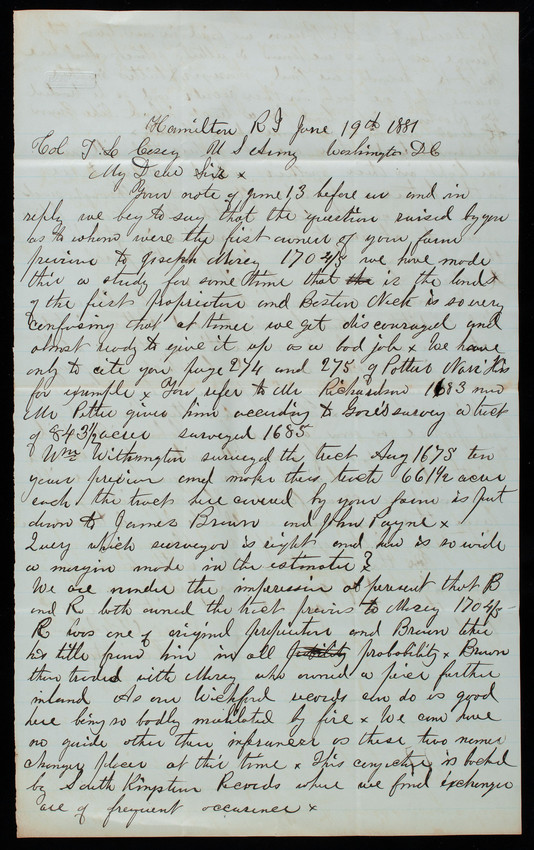 Hamilton R I June 19th 1881
Col T. L Casey U S Army Washington DC
My Dear Sir x
Your note of June 13 before us and in
reply we beg to say that the question raised by you
as to whom were the first owner of your farm
previous to Joseph Morey 1704/5 we have made
this a study for some time that the is the lands
of the first proprietors and Boston Neck is so very
confusing that at times we get discouraged and
almost ready to give it up as a bad job x We have
only to cite you page 274 and 275 of Potters Nar. His
for example x You refer to Mr Richardson 1683 now
Mr Potter gives him according to Gore's survey a tract
of 843 1/2 acres surveyed 1685
Wm Withington surveyed the tract Aug 1675 ten
years previous and makes these tracts 661 1/2 acres
each the tract here covered by your farm is put
down to James Brown and John Payne x
Query which surveyor is right and how is so wide
a margin made in the estimates?
We are under the impression at present that B
and R both owned the tract previous to Morey 1704/5
R was one of original proprietors and Brown takes
his title from him in all probability x Brown
then traded with Morey who owned a piece further
inland As our Wickford records can do us good
here being so badly mutilated by fire x We can have
no guide other than inference as these two names
changes places at this time x This conjecture is backed
by South Kingstown Records where we find exchanges
are of frequent occurence x